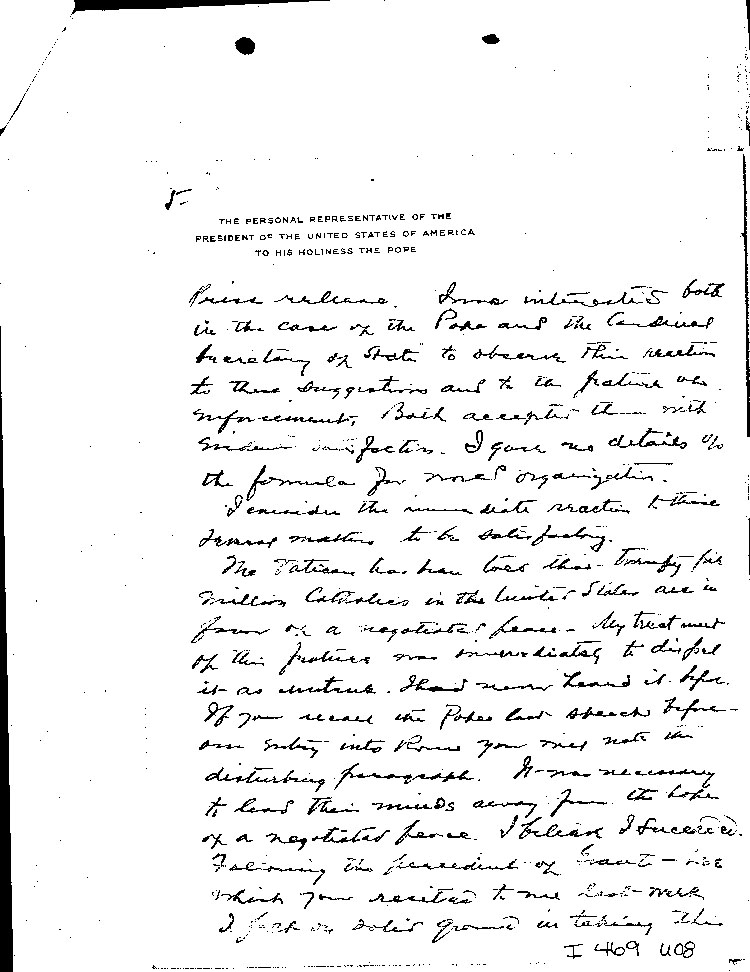 5-
THE PERSONAL REPRESENTATIVE OF THE
PRESIDENT OF THE UNITED STATES OF AMERICA
TO HIS HOLINESS THE POPE
Press release. I was interested both
in the case of the Pope and the Cardinal
Secretary of State to observe their reaction
to these suggestions and to the feature on
enforcement. Both accepted them with
evident satisfaction. I gave no details of
the formula for world organization.
I consider the immediate reaction to these
several matters to be satisfactory.
The Vatican has been told that twenty five
million Catholics in the United States are in
favor of a negotiated peace - My treatment
of this feature was immediately to dispel
it as untrue. I had never heard it before.
If you recall the Popes last speech before
our entry into Rome you may note the
disturbing paragraph. It was necessary
to lead their minds away from the hope
of a negotiated peace. I believe I succeeded.
Following the precedent of Grant - Lee
which you recited to me last week
I felt on solid ground in taking this
I 469 U08